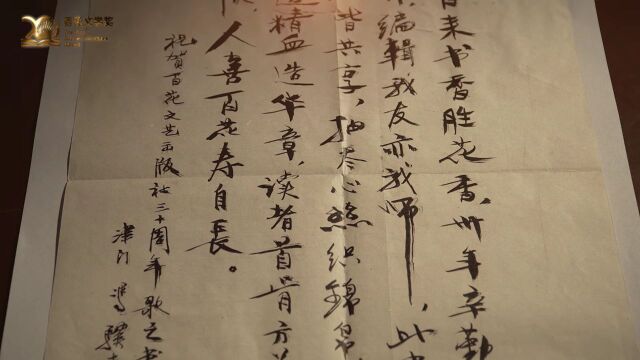 百花文学奖
来书香胜花香,卅年辛勤
编辑我友亦我师,此
皆共享,抽尽心丝织锦
精血造华章,读者首肯方
人喜百花寿自長。
祝贺百花文艺出版社三十周年
津门 冯骥